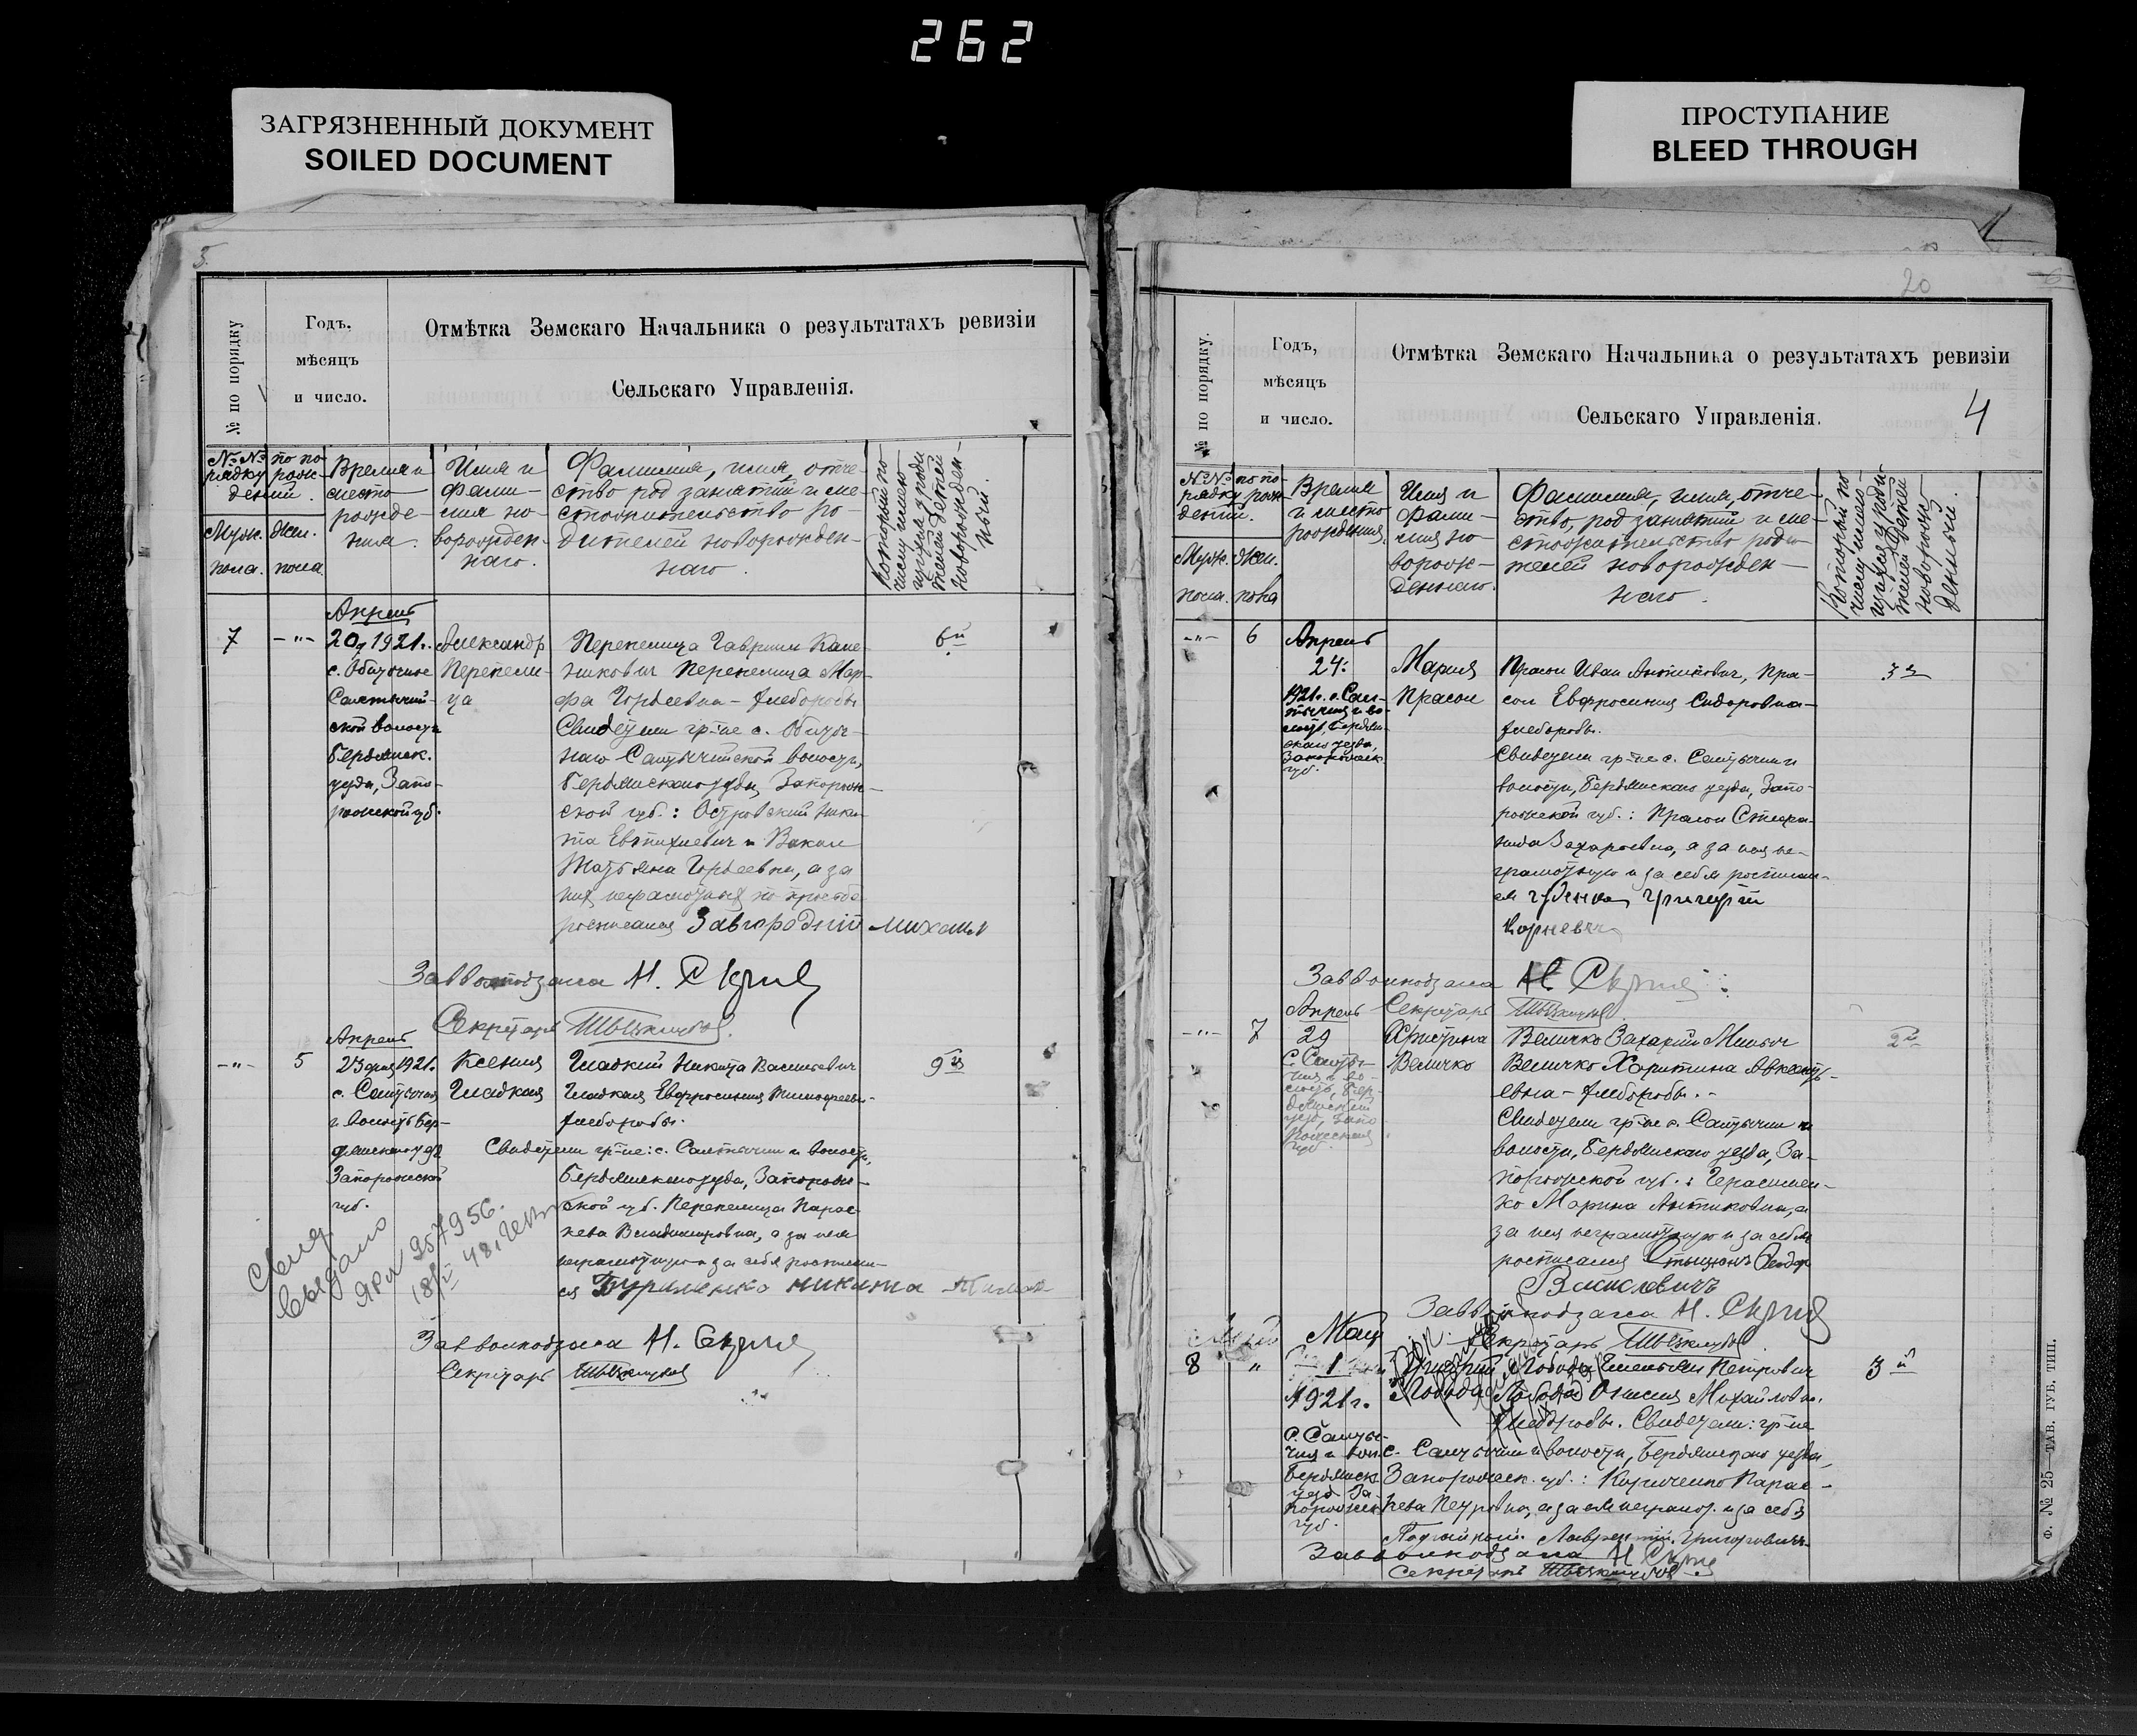 262
ЗАГРЯЗНЕННЫЙ ДОКУМЕНТ
SOILED DOCUMENT
ПРОСТУПАНИЕ
BLEED THROUGH
5.
№ по порядку
Годъ.
мѣсяцъ
и число.
Отмѣтка Земскаго Начальника о результатахъ ревизіи
Сельскаго Управленія.
№№ по по-
рядку рож-
дений.
Муж. Жен.
пола. пола
Время и
место
рожде-
ния.
Имя и
фами-
лия но-
ворожден-
наго.
Фамилия, имя, отче-
ство род занятий и ме-
стожительство ро-
дителей новорожден-
наго.
Который по
числу имею-
щихся у роди
телей детей
новорожден-
ный.
7
-"-
Апрель
20, 1921 г.
с. Обиточное
Салтычий-
ской волости
Бердянск.
уезда, Запо-
рожской губ.
Александр
Перепели-
ца
Перепелица Гавриил Кале-
никович Перепелица Мар-
фа Гордеевна - хлеборобы
Свидетели гр-не с. Обиточ-
наго Салтычийской волости,
Бердянскаго уезда, Запорож-
ской губ.: Островский Ники-
та Евтихиевич и Вакал
Татьяна Гордеевна, а за
них неграмотных по просьбе
росписался Завгородний Михаил
6й
Завволподзага Н. Скрыя
Секретарь
-"-
5
Апрель
23 дня 1921 г.
с. Салтычия
и волость Бер-
дянскаго уезд
Запорожской
губ.
Ксения
Гладкая
Гладкий Никита Васильевич
Гладкая Евфросиния Тимофеевн-
хлеборобы.
Свидетели гр-не: с. Салтычии и волости,
Бердянскаго уезда, Запорож-
ской губ. Перепелица Парас-
кева Владимировна, а за нея
неграмотную и за себя росписал-
ся Никита
9я
свид.
выдано
957956.
Завволподзага Н. Скрыя
Секретарь
20
4
№ по порядку.
Годъ,
мѣсяцъ
и число.
Отмѣтка Земскаго Начальника о результатахъ ревизіи
Сельскаго Управленія.
№№ по по-
рядку рож-
дений.
Муж. Жен.
пола. пола
Время
и место
рождения.
Имя и
фами-
лия но-
ворож-
деннаго.
Фамилия, имя, отче-
ство, род занятий и ме-
стожительство роди-
телей новорожден-
наго.
Который по
числу имею-
щихся у роди-
телей детей
новорож-
денный.
-"-
6
Апрель
24:
1921 г. с. Сал-
тычия и во-
лость, Бердян-
скаго уезда,
Запорожск.
губ.
Мария
Прасол
Прасол Иван Антипович, Пра-
сол Евфросиния Сидоровна-
хлеборобы.
Свидетели гр-не с. Салтычии и
волости, Бердянскаго уезда, Запо-
рожской губ.: Прасол Стефа-
нида Захаровна, а за нея не-
грамотную и за себя росписал-
ся Григорий
Корневич
3я
Завволподзага Н. Скрыя
Секретарь
-"-
7
Апрель
29
с. Салты-
чия и во-
лость, Бер-
дянский
уезд, Запо-
рожская
губ.
Христина
Величко
Величко Захарий Минович
Величко Харитина Авксенть-
евна - хлеборобы. -
Свидетели гр-не с. Салтычии и
волости, Бердянскаго уезда, За-
порожской губ.: Герасимен-
ко Марина Антиповна, а
за нея неграмотную и за себя
росписался Федор
Васильевичъ
2й
Завволподзага Н. Скрыя
Секретарь
8
"
Май
1
1921 г.
с. Салты-
чия и вол.
Бердянск.
уезд За-
порожск.
губ.
Григорий
Лобода
Лобода Емельян Петрович
Лобода Анисия Михайловн.
хлеборобы. Свидетели: гр-не
с. Салтычии и волости, Бердянскаго уезда,
Запорожск. губ.: Кириченко Парас-
кева Петровна, а за нея неграмот. и за себя
Лаврентий Григоровичъ
3й
Завволподзага Н Скрыя
Секретарь
Ф. № 25—ТАВ. ГУБ. ТИП.